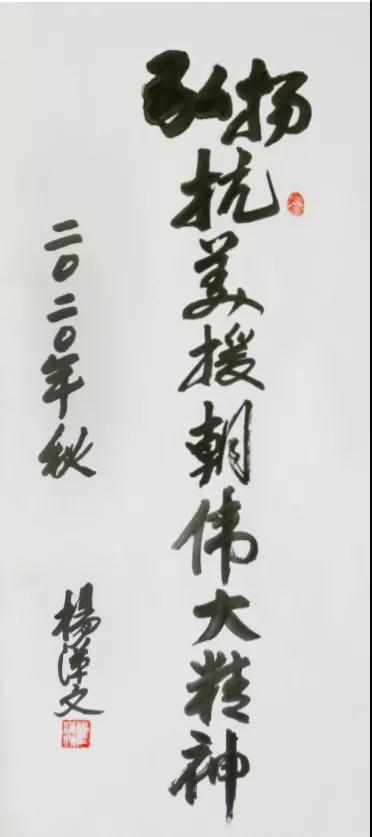 弘扬抗美援朝伟大精神
二〇二〇年秋
杨泽文